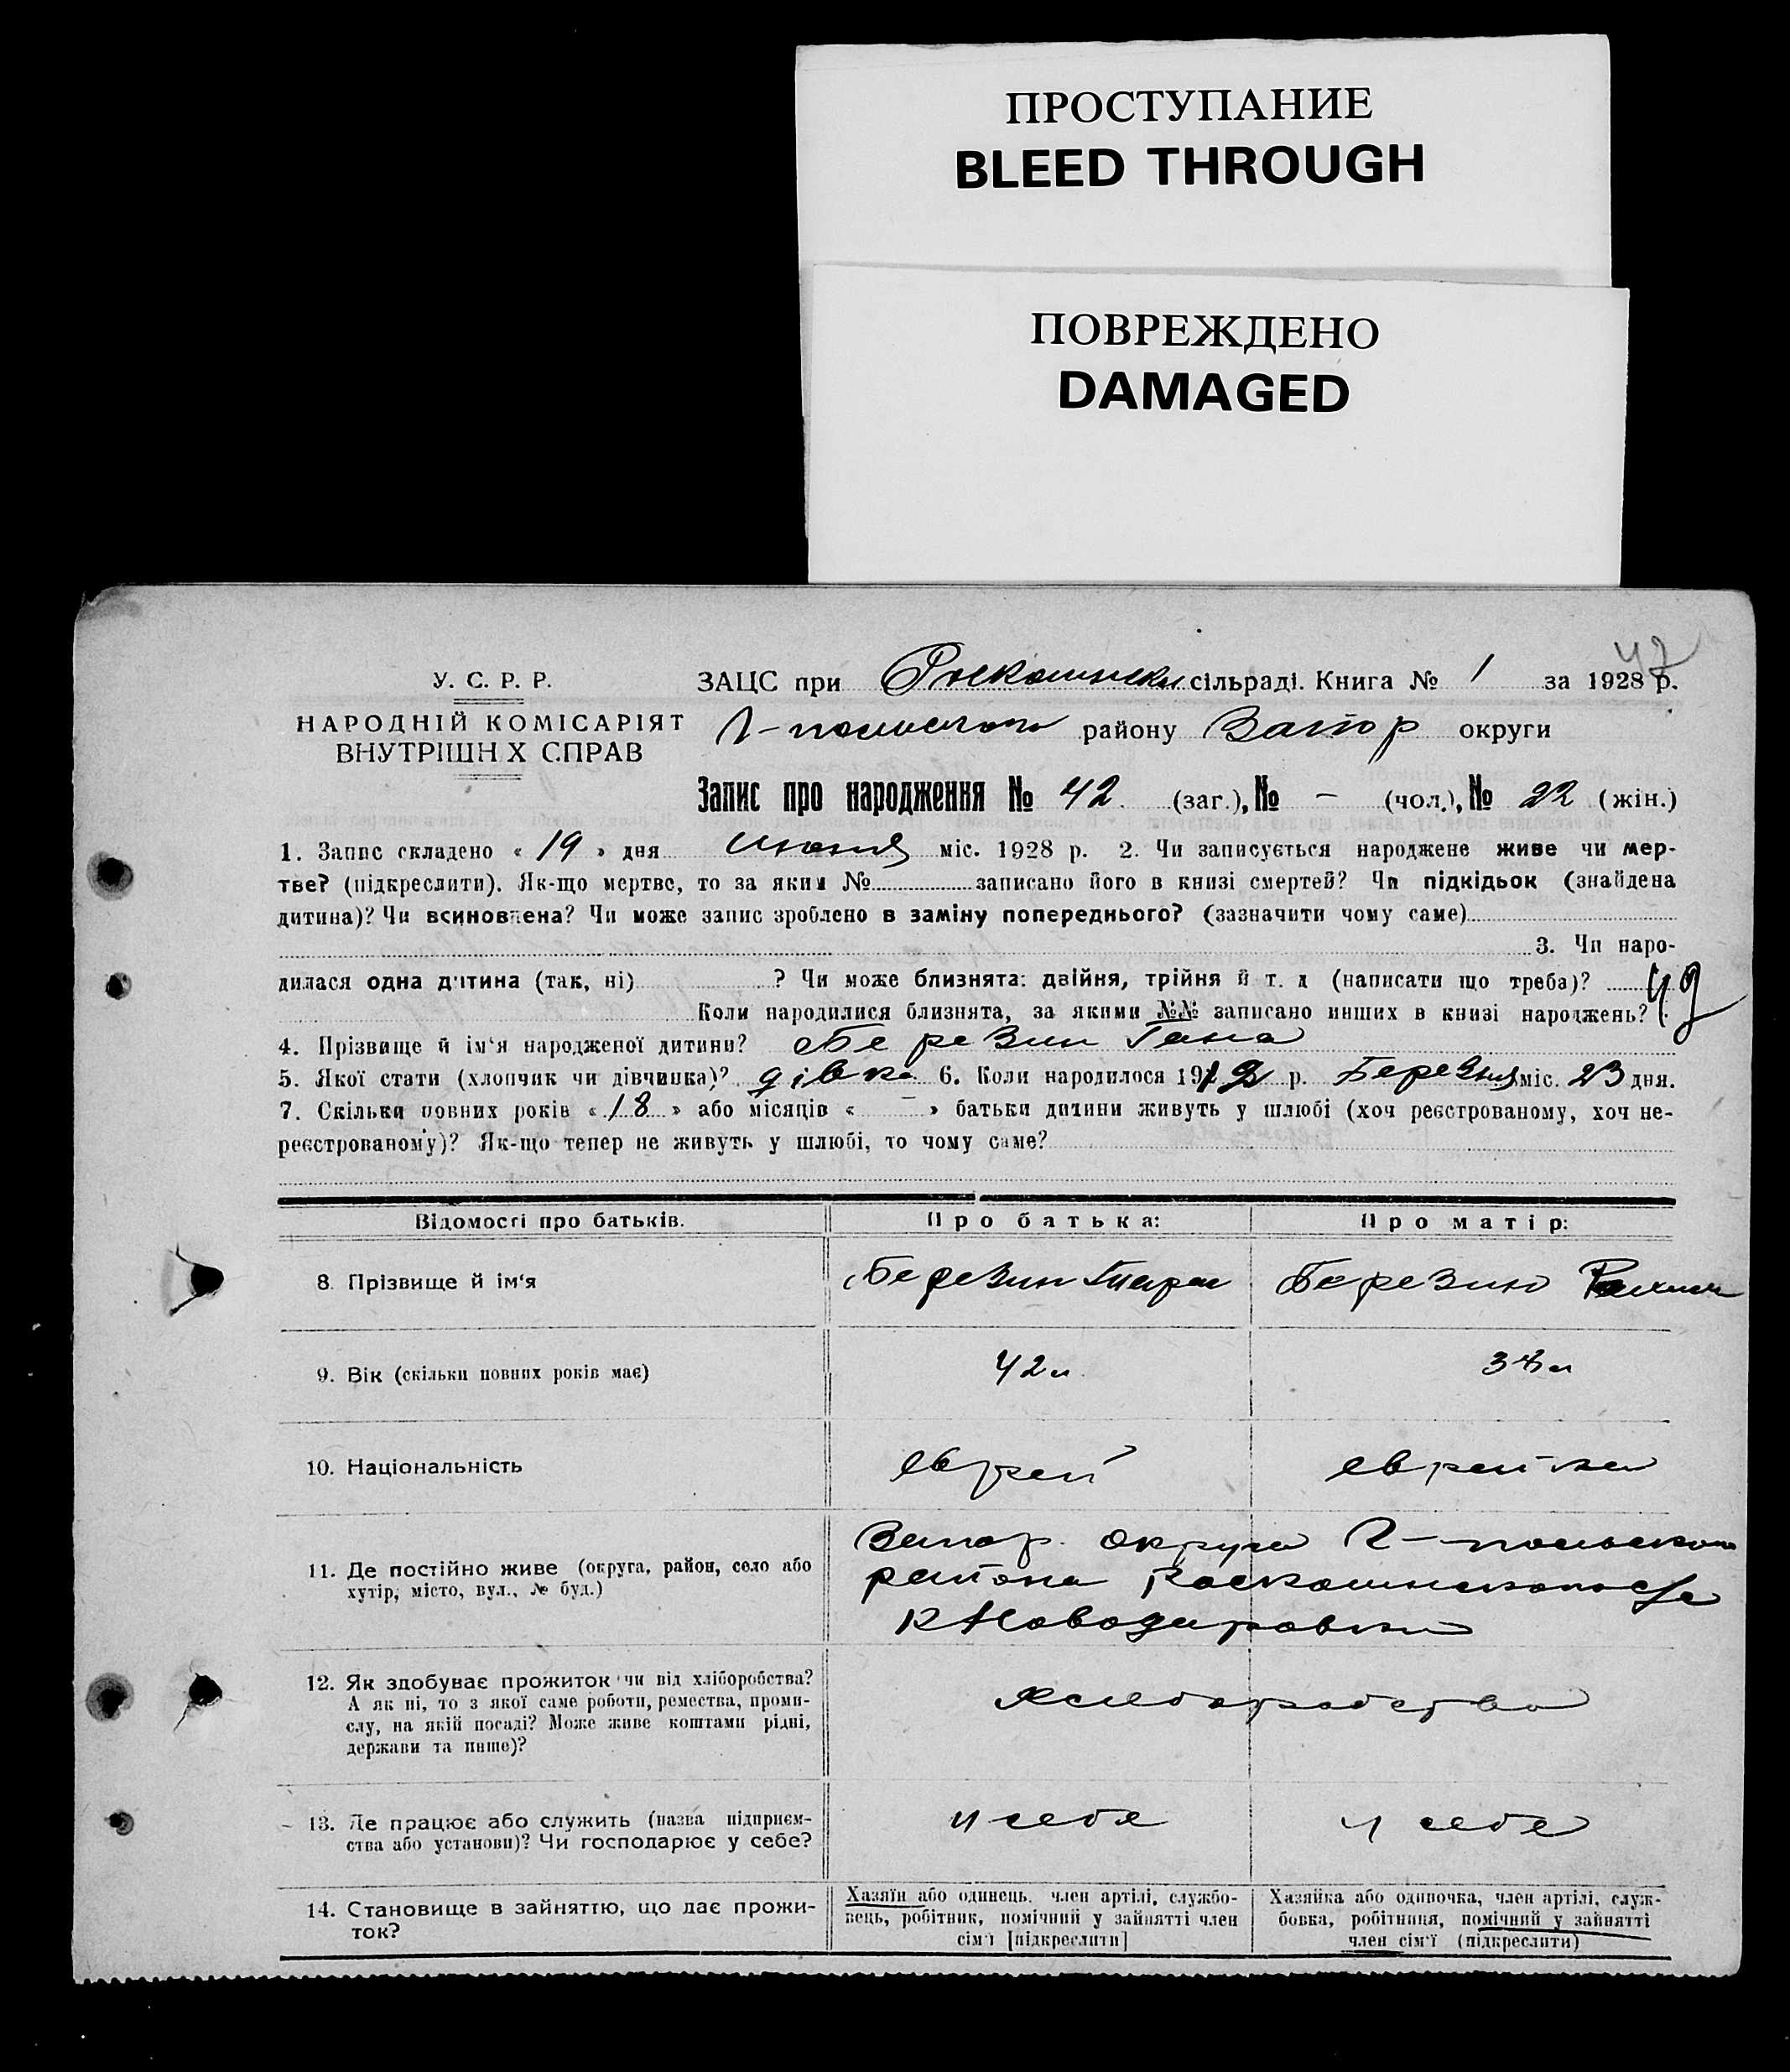 ПРОСТУПАНИЕ
BLEED THROUGH
ПОВРЕЖДЕНО
DAMAGED
47
У. С. Р. Р.
НАРОДНІЙ КОМІСАРІЯТ
ВНУТРІШН Х СПРАВ
ЗАЦС при сільраді. Книга № 1 за 1928 р.
району Запор округи
Запис про народження № 42 (заг.), № – (чол.), № 22 (жін.)
1. Запис складено « 19 » дня июня міс. 1928 р. 2. Чи записується народжене живе чи мер-
тве? (підкреслити). Як-що мертве, то за яким № записано його в книзі смертей? Чи підкідьок (знайдена
дитина)? Чи всиновлена? Чи може запис зроблено в заміну попереднього? (зазначити чому саме)
3. Чи наро-
дилася одна дитина (так, ні) ? Чи може близнята: двійня, трійня й т. д (написати що треба)?
Коли народилися близнята, за якими №№ записано инших в книзі народжень?
4. Прізвище й ім‘я народженої дитини? Березин Гана
5. Якої стати (хлопчик чи дівчинка)? дівка 6. Коли народилося 1912 р. Березня міс. 23 дня.
7. Скільки повних років « 18 » або місяців « – » батьки дитини живуть у шлюбі (хоч реєстрованому, хоч не-
реєстрованому)? Як-що тепер не живуть у шлюбі, то чому саме?
Відомості про батьків.
Про батька:
Про матір:
8. Прізвище й ім‘я
Березин
Березин
9. Вік (скільки повних років має)
42 л
10. Національність
еврей
еврейка
11. Де постійно живе (округа, район, село або
хутір, місто, вул., № буд.)
Запор. округи
района
12. Як здобуває прожиток чи від хліборобства?
А як ні, то з якої саме роботи, ремества, проми-
слу, на якій посаді? Може живе коштами рідні,
держави та инше)?
хлеборобство
13. Де працює або служить (назва підприєм-
ства або установи)? Чи господарює у себе?
у себе
у себе
14. Становище в зайняттю, що дає прожи-
ток?
Хазяїн або одинець, член артілі, службо-
вець, робітник, помічний у зайнятті член
сім‘ї [підкреслити]
Хазяйка або одиночка, член артілі, служ-
бовка, робітниця, помічний у зайнятті
член сім‘ї (підкреслити)